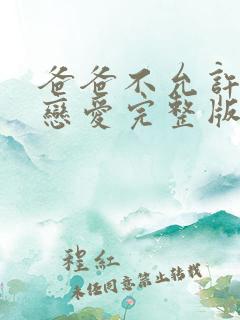 爸爸不允許
戀愛完整版
程紅
未任同意禁止轉載